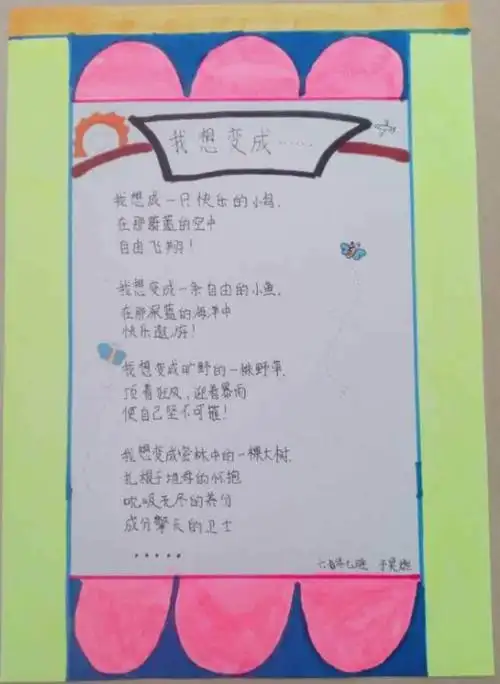 我想变成……
我想成一只快乐的小鸟.
在那蔚蓝的空中
自由飞翔!
我想变成一条自由的小鱼.
在那深蓝的海洋中
快乐遨游!
我想变成旷野的一株野草.
顶着狂风,迎着暴雨
使自己坚不可摧!
我想变成密林中的一棵大树.
扎根于地母的怀抱
吮吸无尽的养分
成为擎天的卫士
……
六年七班